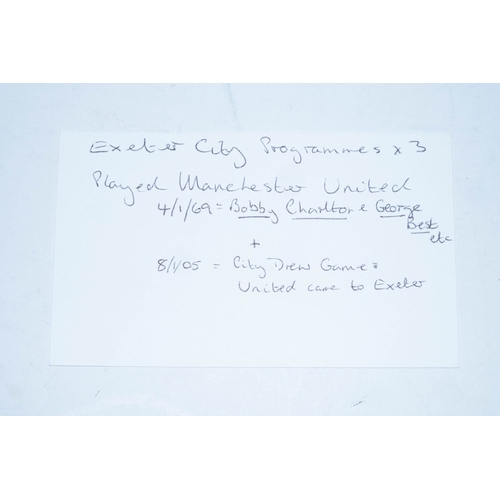 Exeter City Programmes x 3
Played Manchester United
4/1/69 = Bobby Charlton & George
Best
etc
+
8/1/05 = City Drew Game =
United came to Exeter